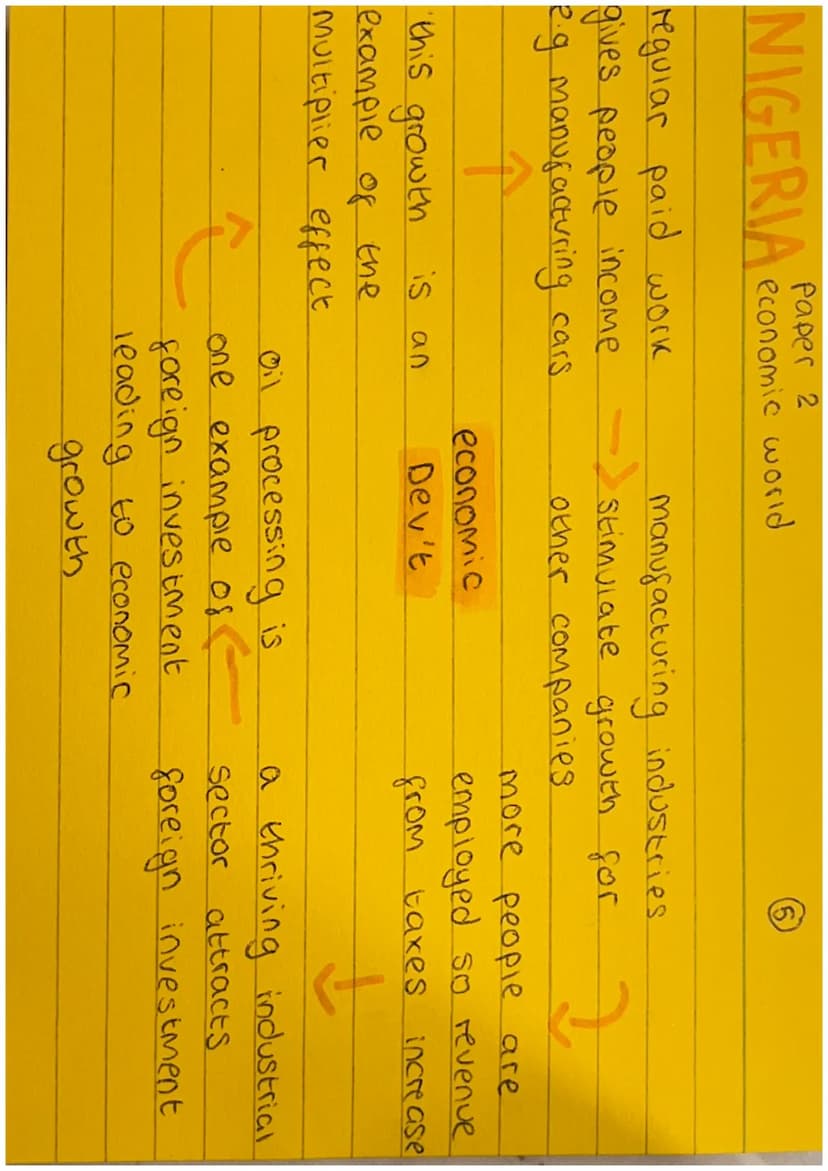 NIGERIA
Paper 2
economic world
5
regular paid work
gives people income
e.g manufacturing cars
manufacturing industries
stimulate growth for
other companies
more people are
employed so revenue
from taxes increase
a thriving industrial
sector attracts
foreign investment
oil processing is
one example of
foreign investment
leading to economic
growth
this growth is an
example of the
multiplier effect
economic
Dev't